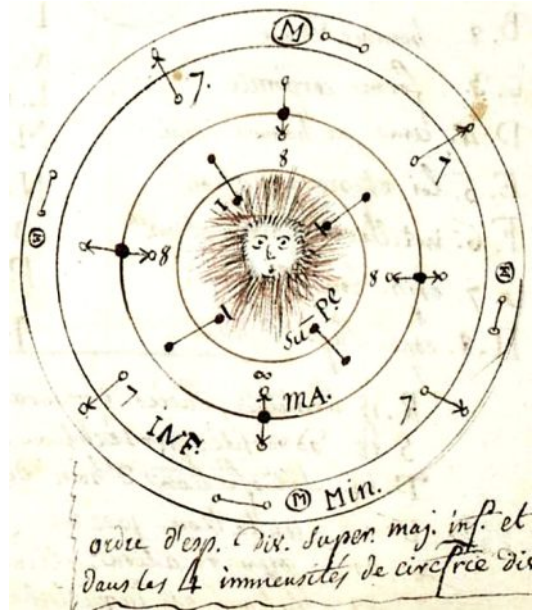 M
7.
8
7
1
1
M
8
8
M
1
Sup.e
∞
mA.
7
7.
INF.
M Min.
ordre d'esp. Div. Super. maj. inf. et
dans les 4 immensités de circfrce div